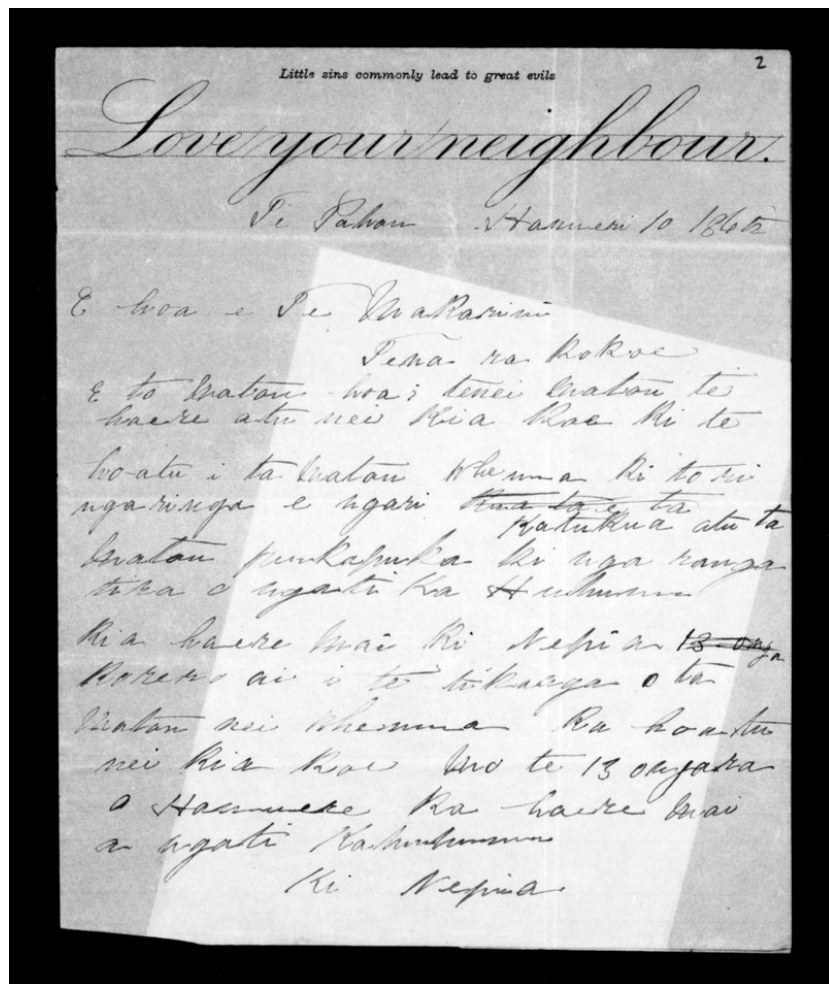 2
Little sins commonly lead to great evils
Love your neighbour.
Te Pahou Hanueri 10 186
E hoa e Te Makarini
Tena ra kokoe
E to matou hoa; tenei matou te
haere atu nei kia koe ki te
hoatu i ta matou whenua ki to ri
ngaringa e ngari ta
Katukua atu ta
matou pukapuka ki nga ranga
tira o ngati Ka Huhunu
kia haere mai ki Nepia 13 onga
korero ai i te tikanga o ta
matou nei whenua Ka hoatu
nei kia koe mo te 13 ongara
o Hanuere ka haere mai
a ngati Kahuhunu
Ki Nepia